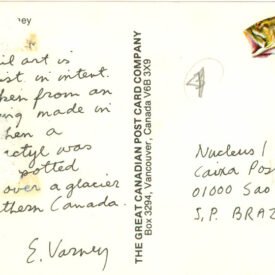 ney
il art is
ist in intent.
ken from an
ng made in
hen a
actyl was
potted
over a glacier
thern Canada.
E. Varney
THE GREAT CANADIAN POST CARD COMPANY
Box 3294, Vancouver, Canada V6B 3X9
Nucleus 1
Caixa Pos
01000 Sao
S.P. BRAZ